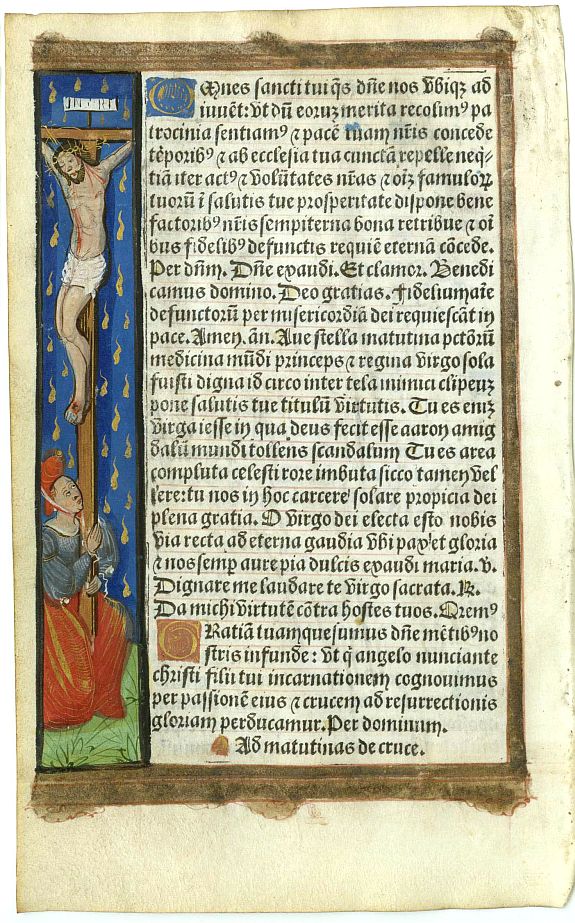 INRI
Omnes sancti tui q̄s dn̄e nos vbiqȝ ad
iuuēt: vt dū eoruȝ merita recolimꝰ pa
trocinia sentiam⁹ ⁊ pacē tuam nr̄is concede
tēporibꝰ ⁊ ab ecclesia tua cunctā repelle neq̄-
tiā iter actꝰ ⁊ volūtates nr̄as ⁊ oīȝ famuloꝝ
tuorū ī salutis tue prosperitate dispone bene
factoribꝰ nr̄is sempiterna bona retribue ⁊ oī
bus fidelibꝰ defunctis requiē eternā cōcede.
Per dn̄m. Dn̄e exaudi. Et clamor. Benedi
camus domino. Deo gratias. Fidelium aīe
defunctorū per misericordiā dei requiescāt in
pace. Amen. an̄. Aue stella matutina pctōrū
medicina mūdi princeps ⁊ regina virgo sola
fuisti digna id circo inter tela inimici clipeuȝ
pone salutis tue titulū virtutis. Tu es enīȝ
virga iesse in qua deus fecit esse aaron amig
dalū mundi tollens scandalum Tu es area
compluta celesti rore imbuta sicco tamen vel
lere: tu nos in hoc carcere solare propicia dei
plena gratia. O virgo dei electa esto nobis
via recta ad eterna gaudia vbi pax et gloria
⁊ nos semp aure pia dulcis exaudi maria. v.
Dignare me laudare te virgo sacrata. R̄.
Da michi virtutē cōtra hostes tuos. Oremꝰ
Oratiā tuam quesumus dn̄e mētibꝰ no
stris infunde: vt q̄ angelo nunciante
christi filii tui incarnationem cognouimus
per passionē eius ⁊ crucem ad resurrectionis
gloriam perducamur. Per dominum.
Ad matutinas de cruce.